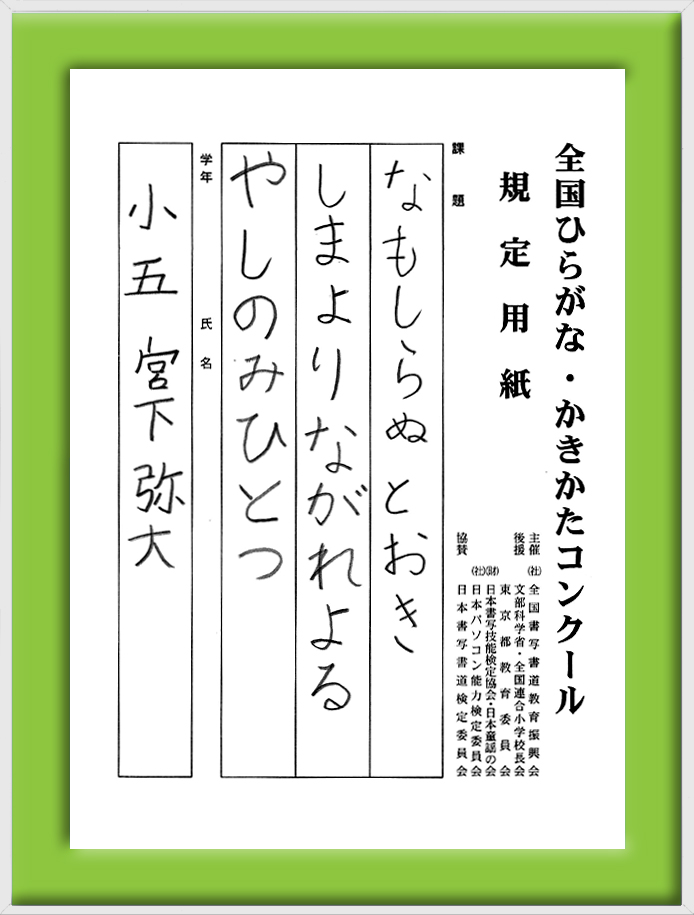 全国ひらがな・かきかたコンクール
規定用紙
主催 (社)全国書写書道教育振興会
後援 文部科学省・全国連合小学校長会
東京都教育委員会
(財)日本書写技能検定協会・日本童謡の会
(社)日本パソコン能力検定委員会
協賛 日本書写書道検定委員会
課題
なもしらぬとおき
しまよりながれよる
やしのみひとつ
学年 氏名
小五 宮下弥大